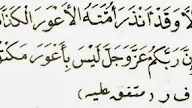 وَقَدْ أَنْذَرَ أُمَّتَهُ الْأَعْوَرَ الْكَذَّا
نَّ رَبَّكُمْ عَزَّ وَجَلَّ لَيْسَ بِأَعْوَرَ مَكْتُو
ف ر (متفق عليه)